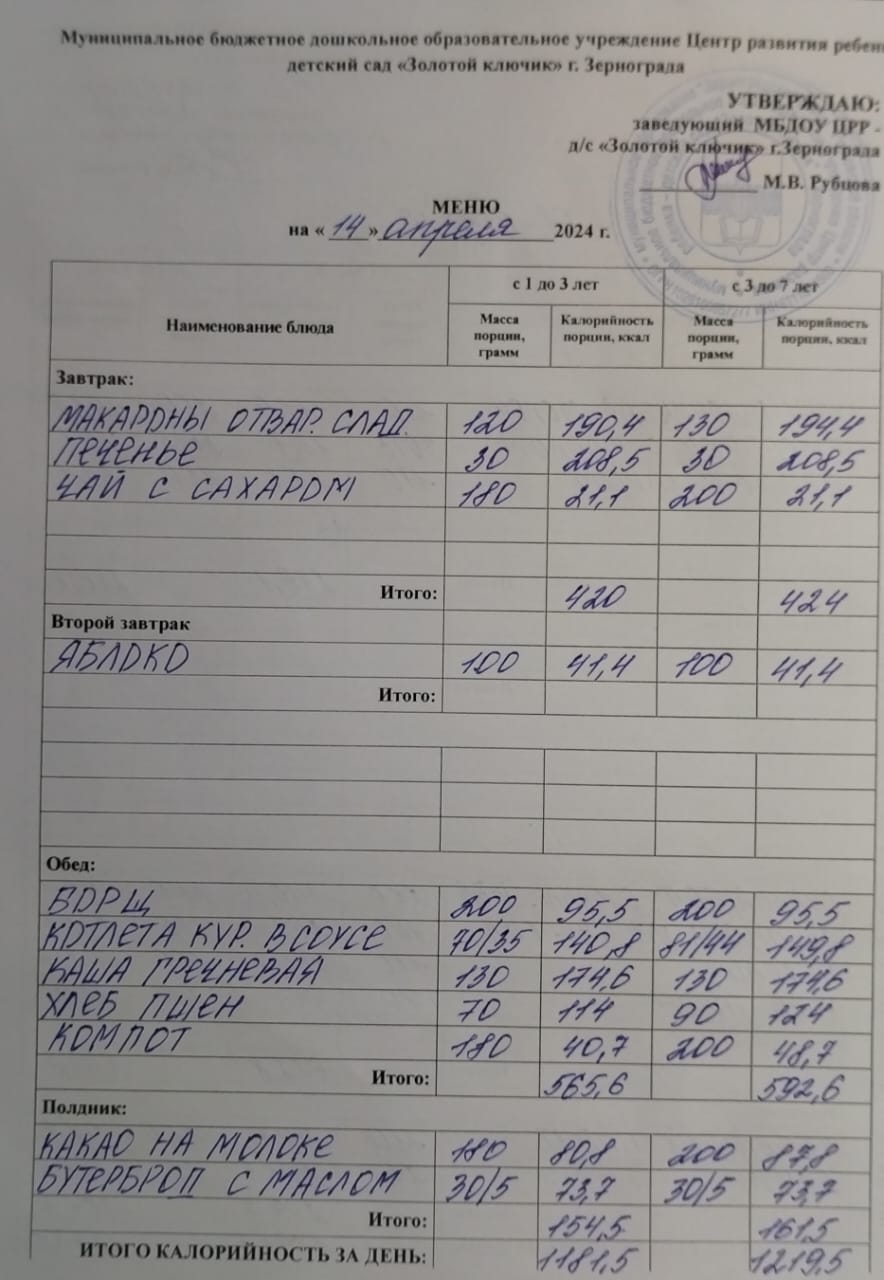 Муниципальное бюджетное дошкольное образовательное учреждение Центр развития ребен
детский сад «Золотой ключик» г. Зернограда
УТВЕРЖДАЮ:
заведующий МБДОУ ЦРР -
д/с «Золотой ключик» г.Зернограда
М.В. Рубцова
МЕНЮ
на « 14 » апреля 2024 г.
Наименование блюда с 1 до 3 лет с 3 до 7 лет
Масса порции, грамм Калорийность порции, ккал Масса порции, грамм Калорийность порции, ккал
Завтрак:
МАКАРОНЫ ОТВАР. СЛАД. 120 190,4 130 194,4
ПЕЧЕНЬЕ 30 208,5 30 208,5
ЧАЙ С САХАРОМ 180 21,1 200 21,1
Итого: 420 424
Второй завтрак
ЯБЛОКО 100 41,4 100 41,4
Итого:
Обед:
БОРЩ 200 95,5 200 95,5
КОТЛЕТА КУР. В СОУСЕ 70/35 140,8 81/44 149,8
КАША ГРЕЧНЕВАЯ 130 174,6 130 174,6
ХЛЕБ ПШЕН 70 114 90 124
КОМПОТ 180 40,7 200 48,7
Итого: 565,6 592,6
Полдник:
КАКАО НА МОЛОКЕ 180 80,8 200 87,8
БУТЕРБРОД С МАСЛОМ 30/5 73,7 30/5 73,7
Итого: 154,5 161,5
ИТОГО КАЛОРИЙНОСТЬ ЗА ДЕНЬ: 1181,5 1219,5